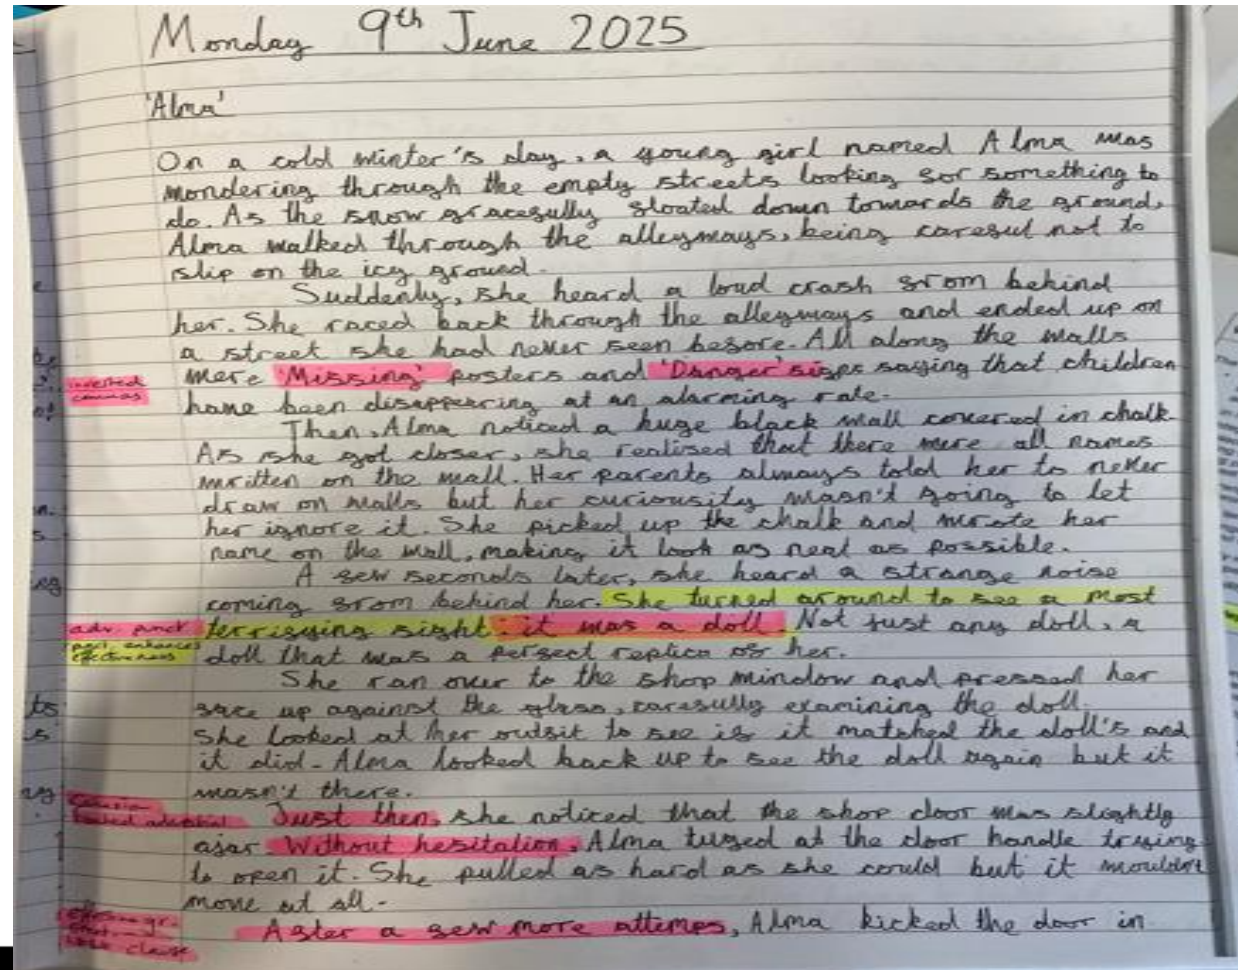 Monday 9th June 2025
'Alma'
On a cold winter's day, a young girl named Alma was
wondering through the empty streets looking for something to
do. As the snow gracefully floated down towards the ground,
Alma walked through the alleyways, being careful not to
slip on the icy ground.
Suddenly, she heard a loud crash from behind
her. She raced back through the alleyways and ended up on
a street she had never seen before. All along the walls
inverted
commas
were 'Missing' posters and 'Danger' signs saying that children
have been disappearing at an alarming rate.
Then, Alma noticed a huge black wall covered in chalk
As she got closer, she realised that there were all names
written on the wall. Her parents always told her to never
draw on walls but her curiousity wasn't going to let
her ignore it. She picked up the chalk and wrote her
name on the wall, making it look as neat as possible.
A few seconds later, she heard a strange noise
coming from behind her. She turned around to see a most
adv. punct
terrifying sight: it was a doll. Not just any doll, a
enhances
effectiveness
doll that was a perfect replica of her.
She ran over to the shop window and pressed her
face up against the glass, carefully examining the doll.
She looked at her outfit to see if it matched the doll's and
it did. Alma looked back up to see the doll again but it
wasn't there.
Just then, she noticed that the shop door was slightly
ajar. Without hesitation, Alma tuged at the door handle trying
to open it. She pulled as hard as she could but it wouldn't
move at all.
clause
After a few more attemps, Alma kicked the door in